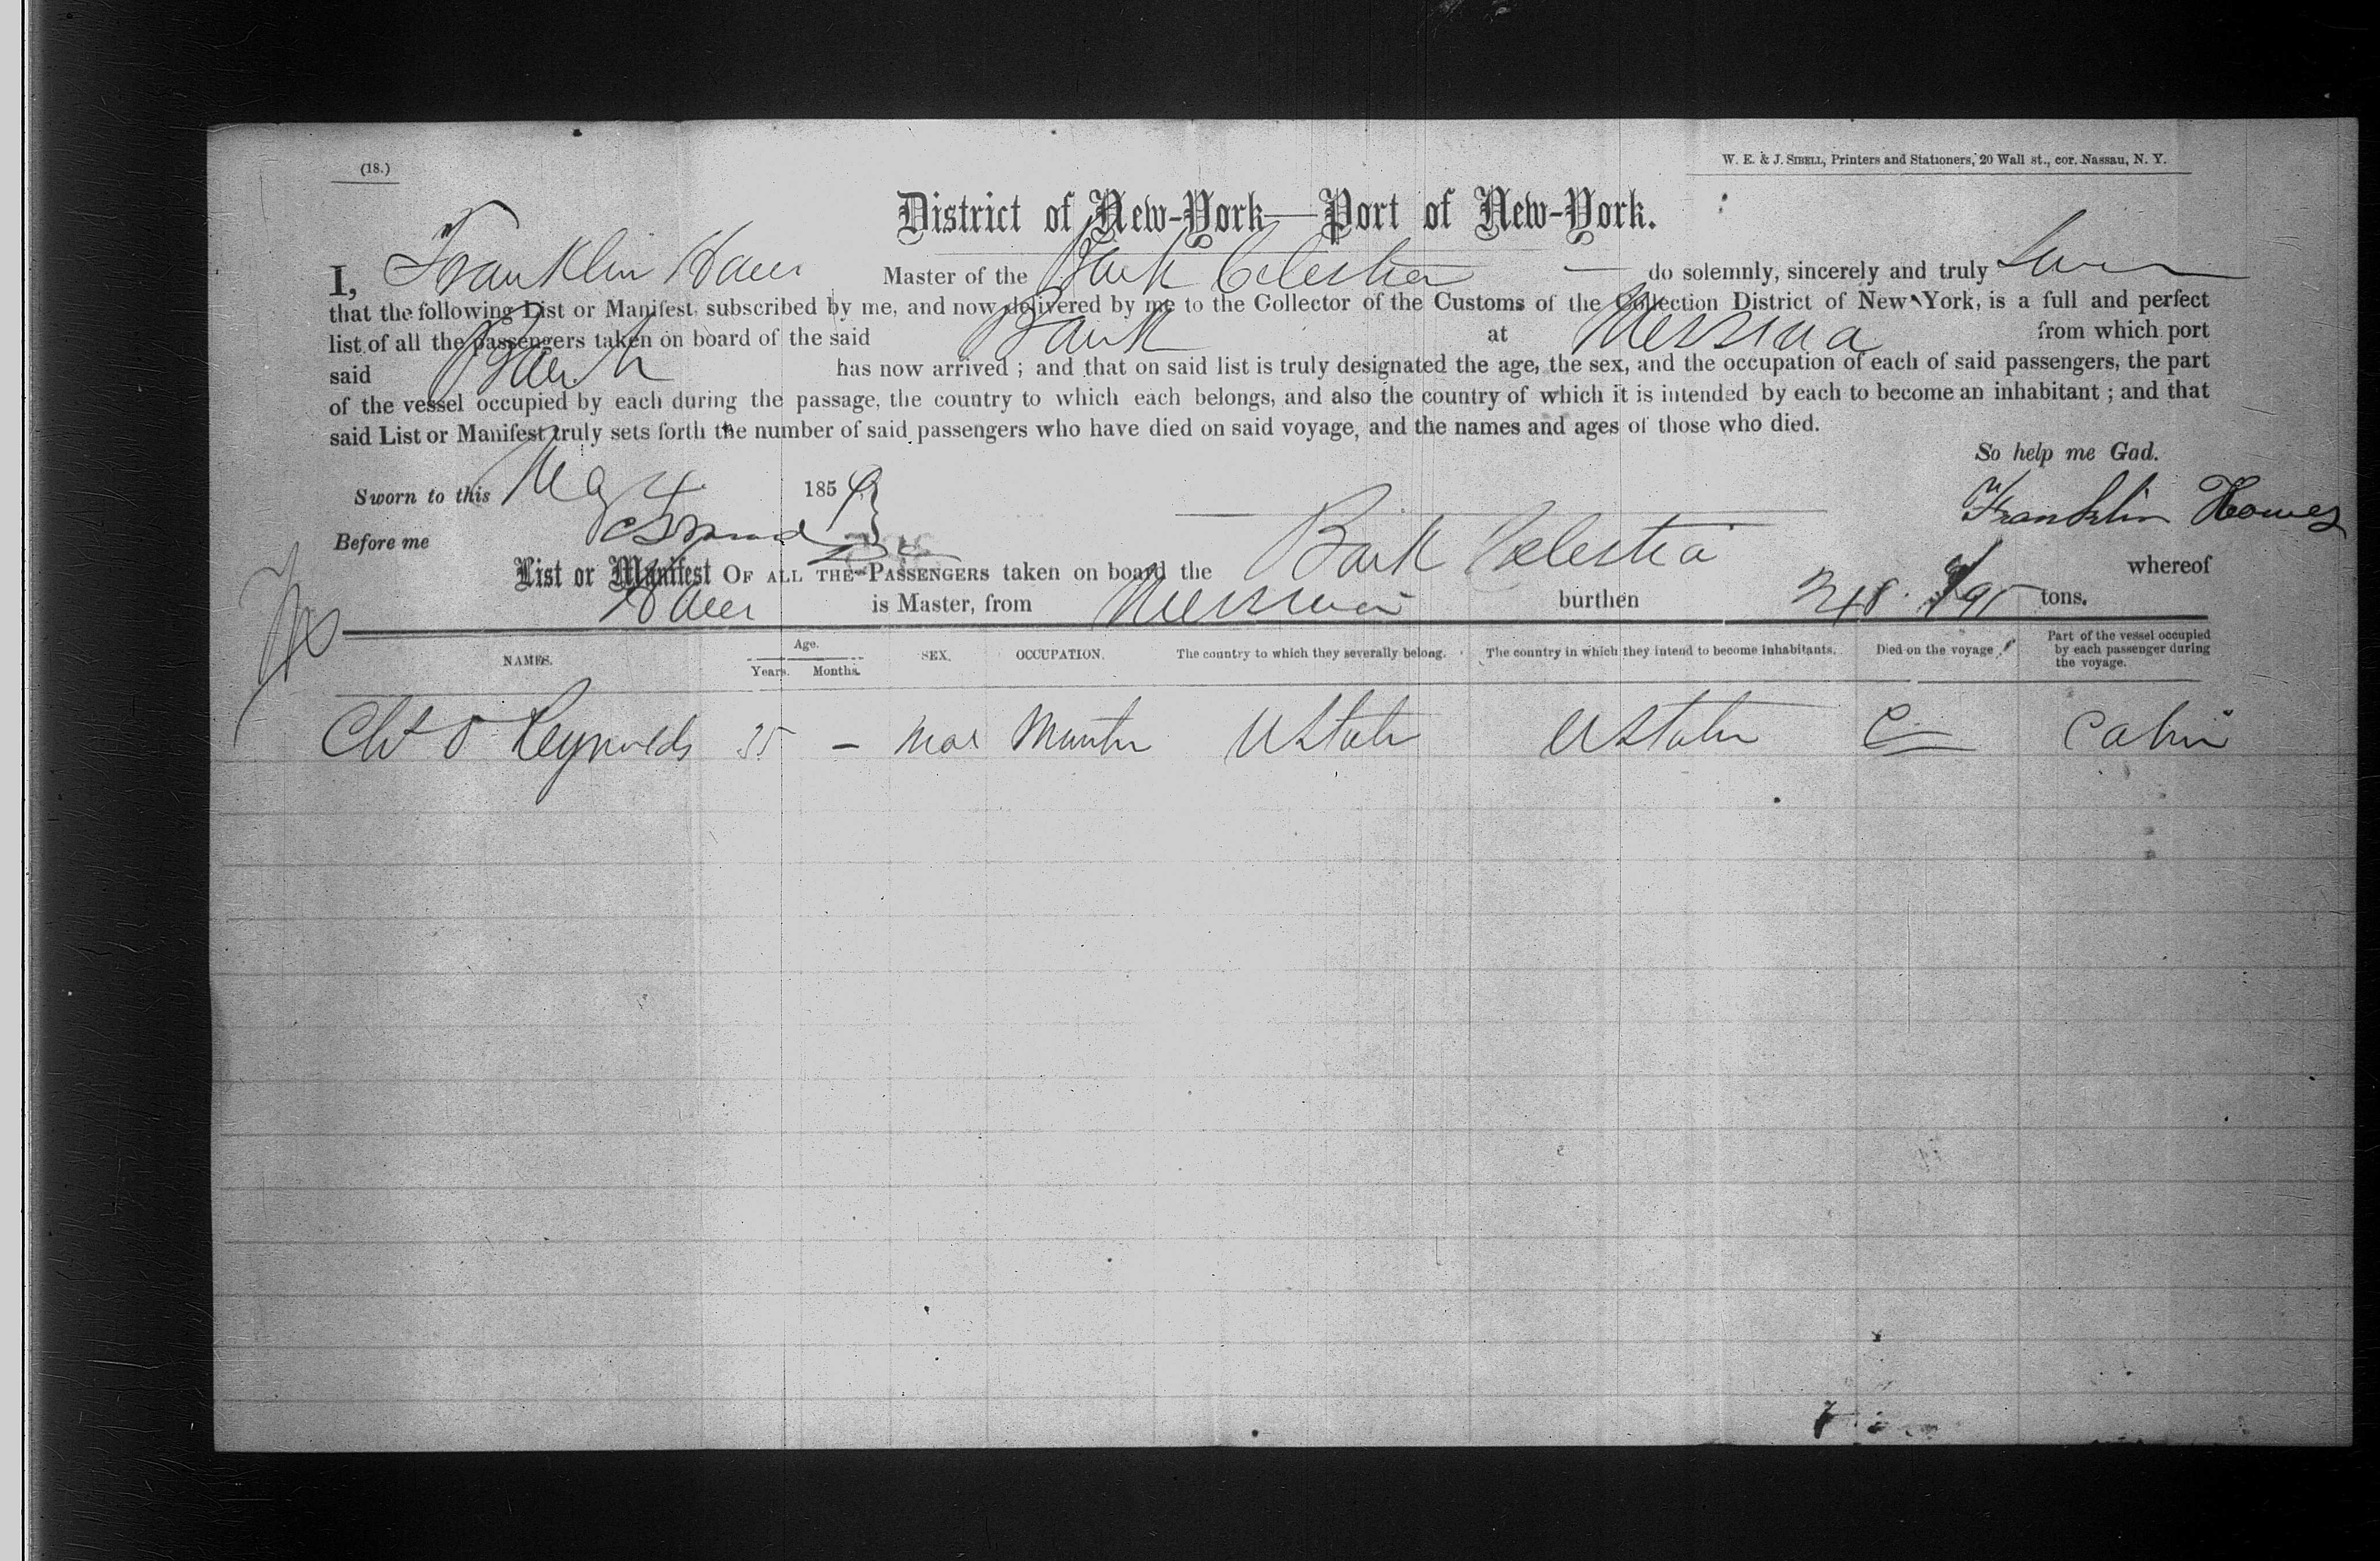 (18.)
W. E. & J. SIBELL, Printers and Stationers, 20 Wall st., cor. Nassau, N. Y.
District of New-York—Port of New-York.
I, Franklin Howes Master of the Bark Celestia — do solemnly, sincerely and truly
that the following List or Manifest, subscribed by me, and now delivered by me to the Collector of the Customs of the Collection District of New York, is a full and perfect
list of all the passengers taken on board of the said Bark at Messina from which port
said Bark has now arrived ; and that on said list is truly designated the age, the sex, and the occupation of each of said passengers, the part
of the vessel occupied by each during the passage, the country to which each belongs, and also the country of which it is intended by each to become an inhabitant ; and that
said List or Manifest truly sets forth the number of said passengers who have died on said voyage, and the names and ages of those who died.
So help me God.
Sworn to this May 4 1859
Franklin Howes
Before me
List or Manifest OF ALL THE PASSENGERS taken on board the Bark Celestia whereof
Howes is Master, from Messina burthen tons.
NAMES. Age. Years. Months. SEX. OCCUPATION. The country to which they severally belong. The country in which they intend to become inhabitants. Died on the voyage Part of the vessel occupied by each passenger during the voyage.
Reynolds 35 — Mal U States U States Cabin